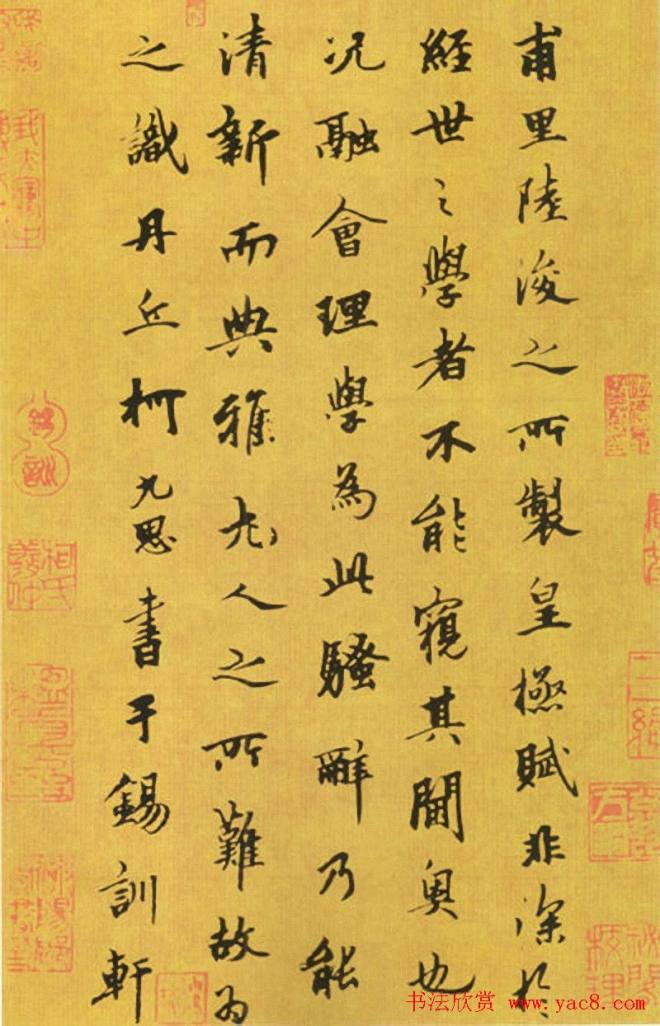 甫里陸浚之所製皇極賦非深於
經世之學者不能窺其閫奥也
况融會理學為此騷辭乃能
清新而典雅尤人之所難故為
之識丹丘柯九思書于錫訓軒
錫訓
柯氏敬仲
书法欣赏 www.yac8.com